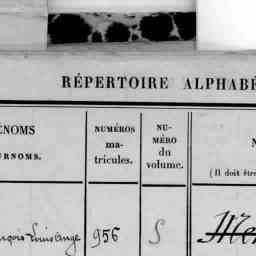 RÉPERTOIRE ALPHABÉ
ÉNOMS
URNOMS.
NUMÉROS
ma-
tricules.
NU-
MÉRO
du
volume.
N
(Il doit êtr
ançois Louis Ange
956
S